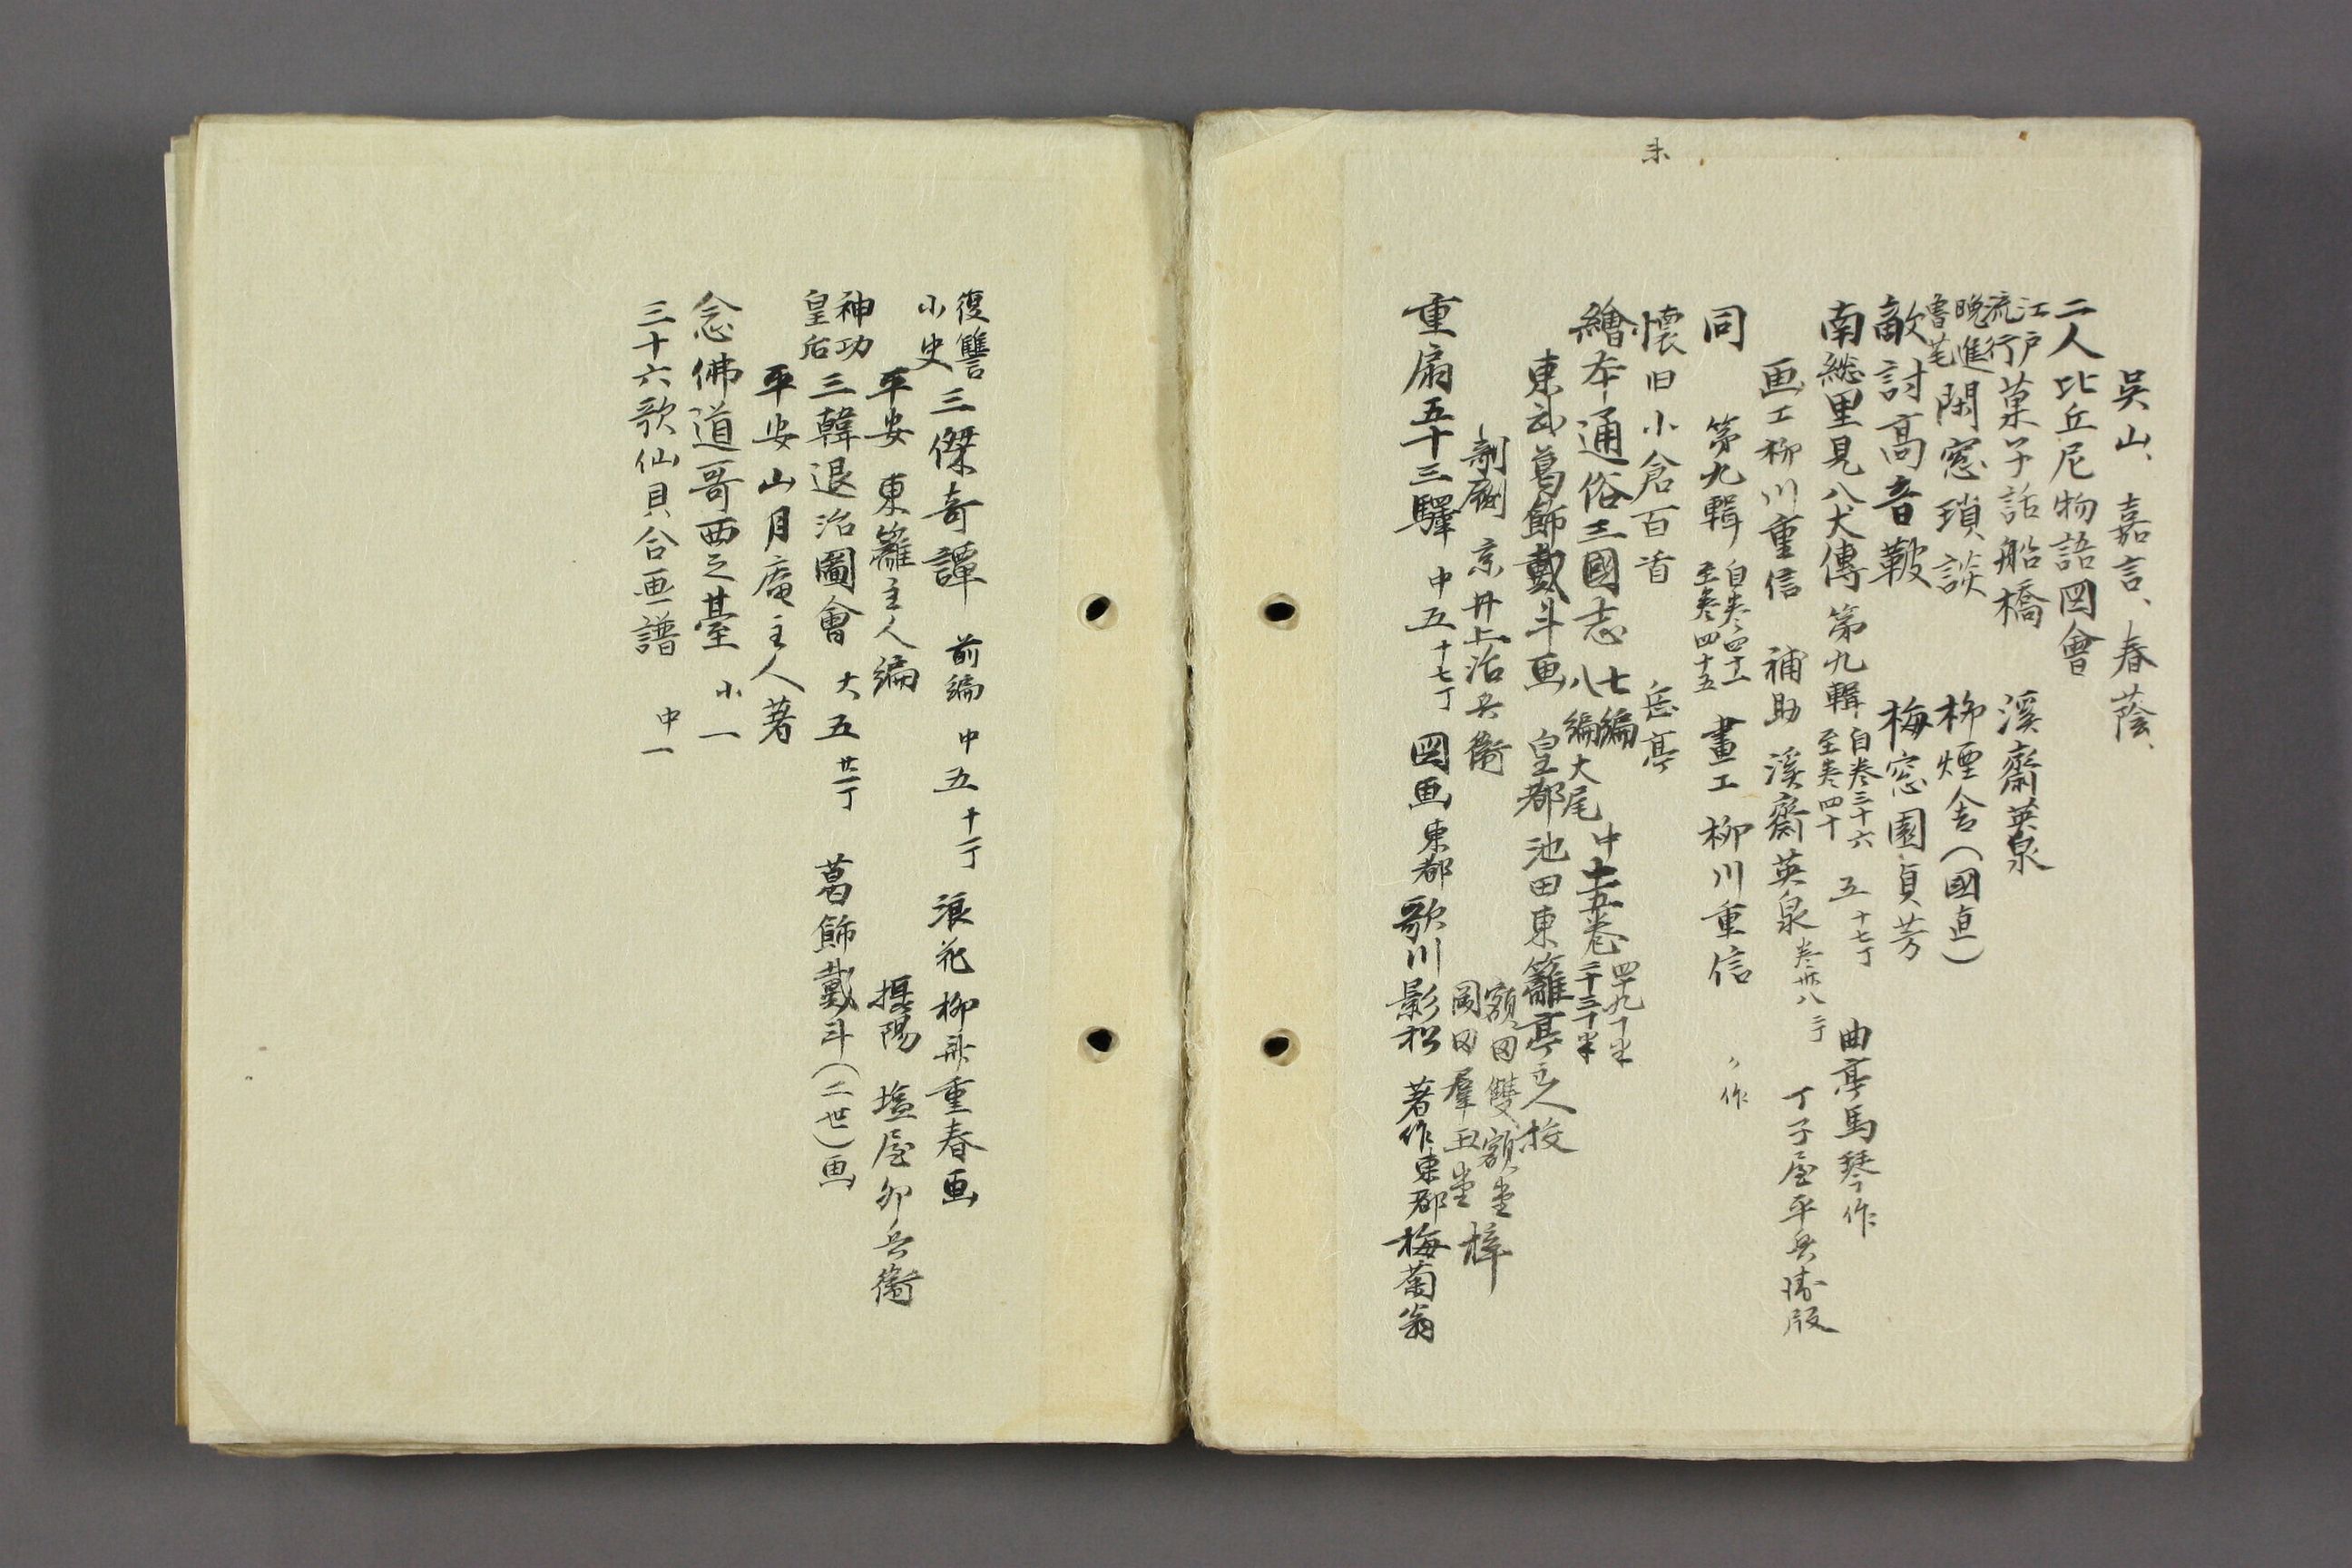 呉山、嘉言、春蔭、
二人比丘尼物語図會
江戸流行菓子話船橋 溪齋英泉
晩進魯笔閑窓瑣談 柳煙舎(國直)
敵討高音鞁 梅窓園貞芳
南総里見八犬傳 第九輯 自巻三十六至巻四十 五 十七丁 曲亭馬琴作
画工柳川重信 補助 溪齋英泉 巻卅八 丁子屋平兵衛版
同 第九輯 自巻四十一至巻四十五 畫工 柳川重信 〃作
懐旧小倉百首 岳亭
繪本通俗三國志 七編八編大尾 中十五巻
東武葛飾戴斗画 皇都池田東籬亭主人挍
剞劂 京井上治兵衛 額田雙額堂 岡田羣玉堂 梓
重扇五十三驛 中五 十七丁 図画東都歌川影松 著作東都梅菊翁
復讐小史三傑奇譚 前編 中五 十一丁 浪花柳斎重春画
平安 東籬主人編 攝陽 塩屋卯兵衛
神功皇后三韓退治圖會 大五 廿一丁 葛飾戴斗(二世)画
平安山月庵主人著
念佛道哥西之臺 小一
三十六歌仙貝合画譜 中一